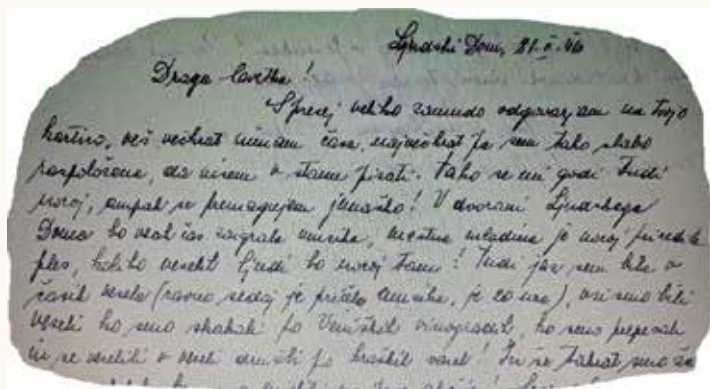 Ljudski Dom, 21.II.46
Draga Cvetka!
Sprecej veliko zamudo odgovarjam na tvojo
kartico, veš večkrat nimam časa, največkrat pa sem tako slabo
razpoložena, da nisem v stanu pisati. Tako se mi godi tudi
nocoj, ampak se premagujem junaško! V dvorani Ljudskega
Doma bo ves čas zaigrala muzika, mestna mladina je nocoj priredila
ples, koliko veselih ljudi bo nocoj tam! Tudi jaz sem bila v
časih vesela (ravno sedaj je pričela muzika, je 20 ura), vsi smo bili
veseli ko smo skakali po vinogradih, ko smo prepevali
in se veselili v veseli družbi po kraških vaseh! In še takrat smo